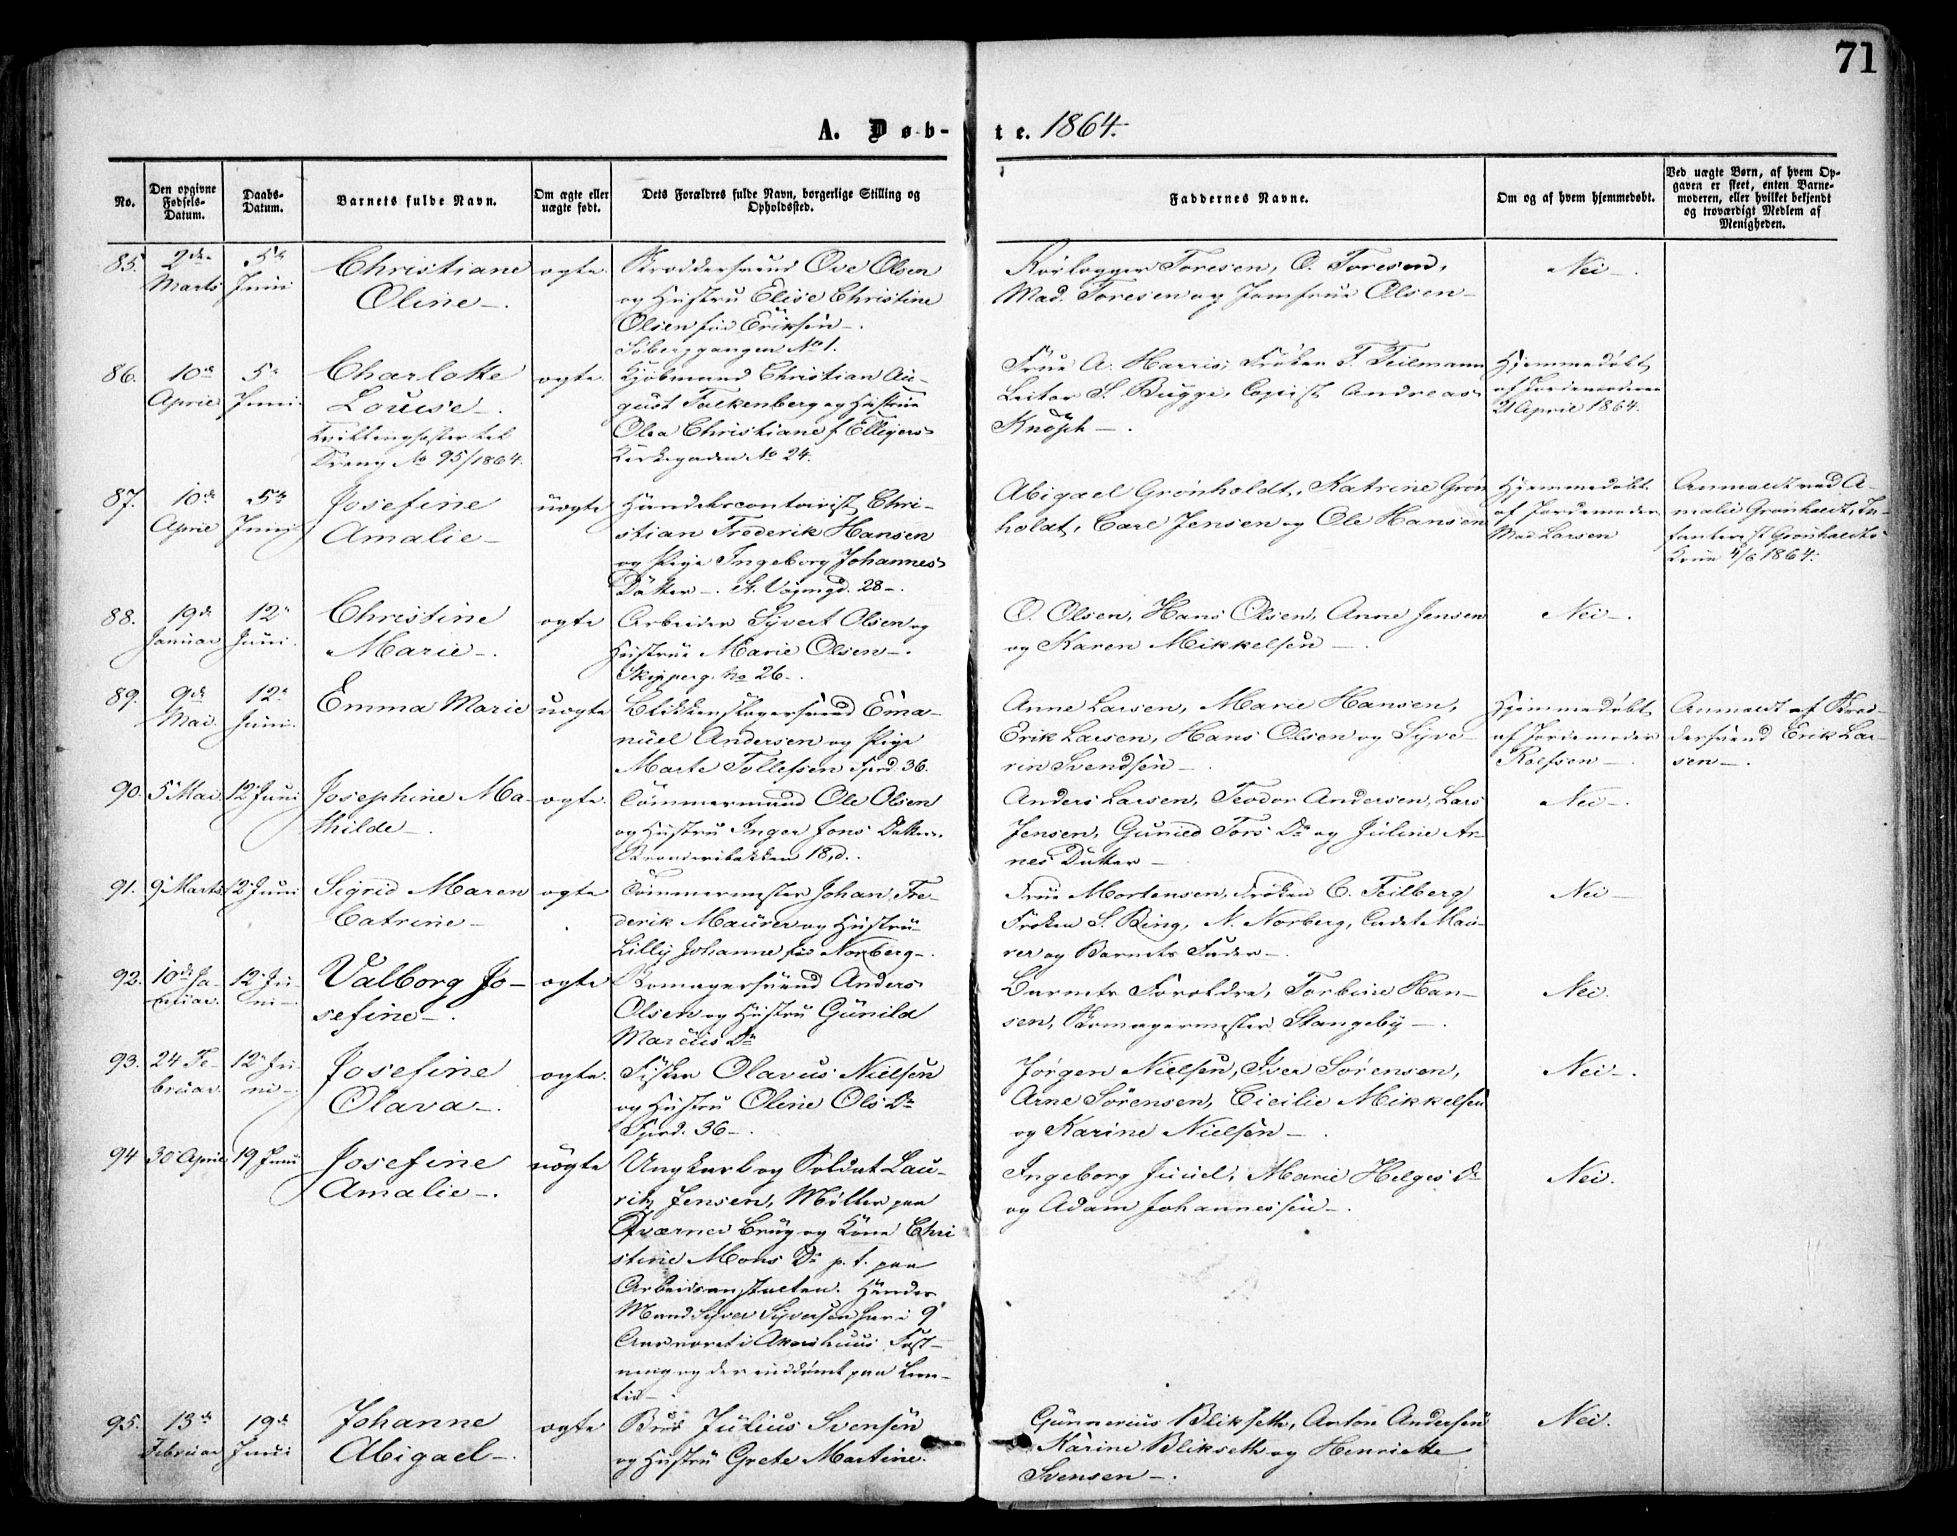 71
A. Døb- te. 1864.
No.
Den opgivne Fødsels-Datum.
Daabs-Datum.
Barnets fulde Navn.
Om ægte eller uægte født.
Dets Forældres fulde Navn, borgerlige Stilling og Opholdssted.
Faddernes Navne.
Om og af hvem hjemmedøbt.
Ved uægte Børn, af hvem Opgaven er skeet, enten Barnemoderen, eller hvilket bekjendt og troværdigt Medlem af Menigheden.
85. 2den Marts 5te Juni
Christiane
Oline
ægte
Ove Olsen
og Hustru Elise Christine
Olsen født Eriksen
No 1.
Toresen, O. Toresen,
Mad. Toresen og Jomfrue Olsen
Nei
86. 10de April 5te Juni
Charlotte
Louise
No 95/1864.
ægte
Kjøbmand Christian Au-
gust Falkenberg og Hustrue
Olea Christiane f. Elligers
Kirkegaden No 24.
Frue A. Harris, Frøken F. Teilmann
S. Bugge, Copist Andreas
Knøph
Hjemmedøbt
af Jordemoderen
21 April 1864.
87. 10de April 5te Juni
Josefine
Amalie
uægte
Handelscontorist Chri-
stian Frederik Hansen
og Pige Ingeborg Johannes
Datter. St. Vognmgd. 28
Abigael Grønholdt, Katrine Grøn
holdt, Carl Jensen og Ole Hansen
Hjemmedøbt
af Jordemoder
Mad Larsen
Anmeldt ved A-
malie Grønholdt, In-
fanterist Grønholdts
Kone 4/6 1864.
88. 19de Januar 12te Juni
Christine
Marie
ægte
Arbeider Syvert Olsen og
Hustrue Marie Olsen
Skipperg. No 26
O. Olsen, Hans Olsen, Anne Jensen
og Karen Mikkelsen
Nei
89. 9de Mai 12te Juni
Emma Marie
uægte
Blikkenslagersvend Ema-
nuel Andersen og Pige
Marte Tollefsen Fjerd. 36.
Anne Larsen, Marie Hansen,
Erik Larsen, Hans Olsen og Syve-
rin Svendsen
Hjemmedøbt
af Jordemoder
Roefsen
Anmeldt af Skræd-
dersvend Erik Lar-
sen
90. 5te Mai 12te Juni
Josephine Ma-
thilde
ægte
Tømmermand Ole Olsen
og Hustru Inger Jons Datter.
18,d.
Anders Larsen, Teodor Andersen, Lars
Jensen, Guneld Tors Dr og Juline Ar-
nes Datter
Nei
91. 9 Marts 12te Juni
Sigrid Maren
Catrine
ægte
Tømmermester Johan Fre-
derik Maurer og Hustru
Lilly Johanne fød Norberg
Frue Mortensen, Frøken C. Feilberg
Frøken S. Bing, N. Norberg, Cadet Mau-
rer og Barnets Fader
Nei
92. 10de Januar 12te Juni
Valborg Jo-
sefine
ægte
Skomagersvend Anders
Olsen og Hustru Gunild
Marcus Dr
Barnets Forældre, Torbine Han-
sen, Skomagermester Stangeby
Nei.
93. 24 Fe-
bruar 12te Ju-
ni
Josefine
Olava
ægte
Fisker Olavus Nielsen
og Hustru Oline Ols Dr
Fjerd. 36
Jørgen Nielsen, Iver Sørensen,
Arne Sørensen, Cicilie Mikkelsen
og Karine Nielsen
Nei
94 30 April 19 Juni
Josefine
Amalie
uægte
Ungkarl og Soldat Lau-
ritz Jensen, Møller paa
Qværner Brug og Kone Chri
stine Mons Dr p. t. paa
Arbeidsanstalten. Hendes
Mand Syver Syversen har i 9
Aar været i Akershuus Fæst-
ning og der inddømt paa Livs-
tid
Ingeborg Juuel, Marie Helges Dr
og Adam Johannessen
Nei.
95. 13de Februar 19de Juni
Johanne
Abigael
ægte
Bud Julius Svensen
og Hustru Grete Martine
Gunnerius Blikseth, Anton Andersen
Karine Blikseth og Henriette
Svensen
Nei.